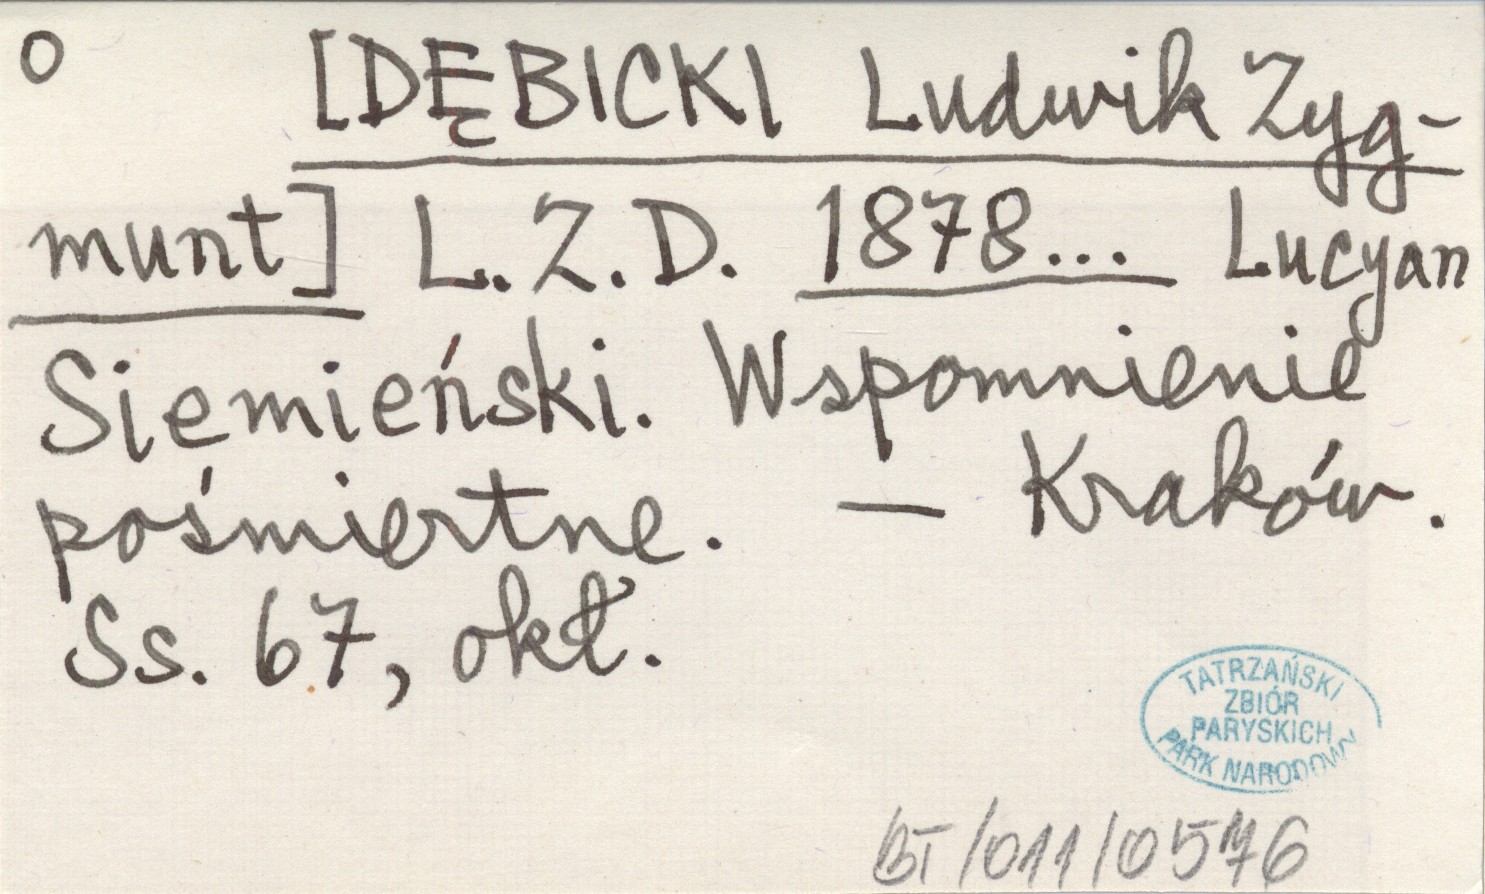 O [DĘBICKI Ludwik Zyg-
munt] L.Z.D. 1878... Lucyan
Siemieński. Wspomnienie
pośmiertne. — Kraków.
Ss. 67, okł.
TATRZAŃSKI
ZBIÓR
PARYSKICH
PARK NARODOWY
BT/011/0576